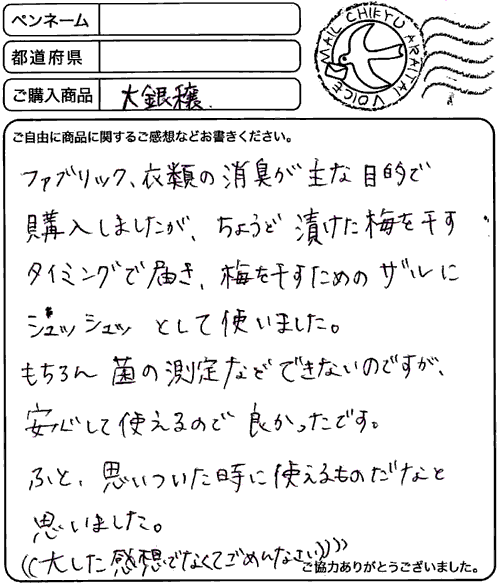 ペンネーム
都道府県
ご購入商品 大銀穣
MAIL CHIEYU ARAITAI VOICE
ご自由に商品に関するご感想などお書きください。
ファブリック、衣類の消臭が主な目的で
購入しましたが、ちょうど漬けた梅を干す
タイミングで届き、梅を干すためのザルに
シュッシュッとして使いました。
もちろん菌の測定などできないのですが、
安心して使えるので良かったです。
ふと、思いついた時に使えるものだなと
思いました。
((大した感想でなくてごめんなさい))))
ご協力ありがとうございました。